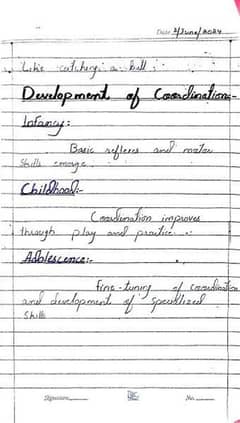 Date 2/June/2024
Like catching a ball.
Development of Coordination:-
Infancy:
Basic reflexes and motor
skills emerge.
Childhood:-
Coordination improves
through play and practice.
Adolescence:-
Fine-tuning of coordination
and development of specialized
skills
Signature
No.